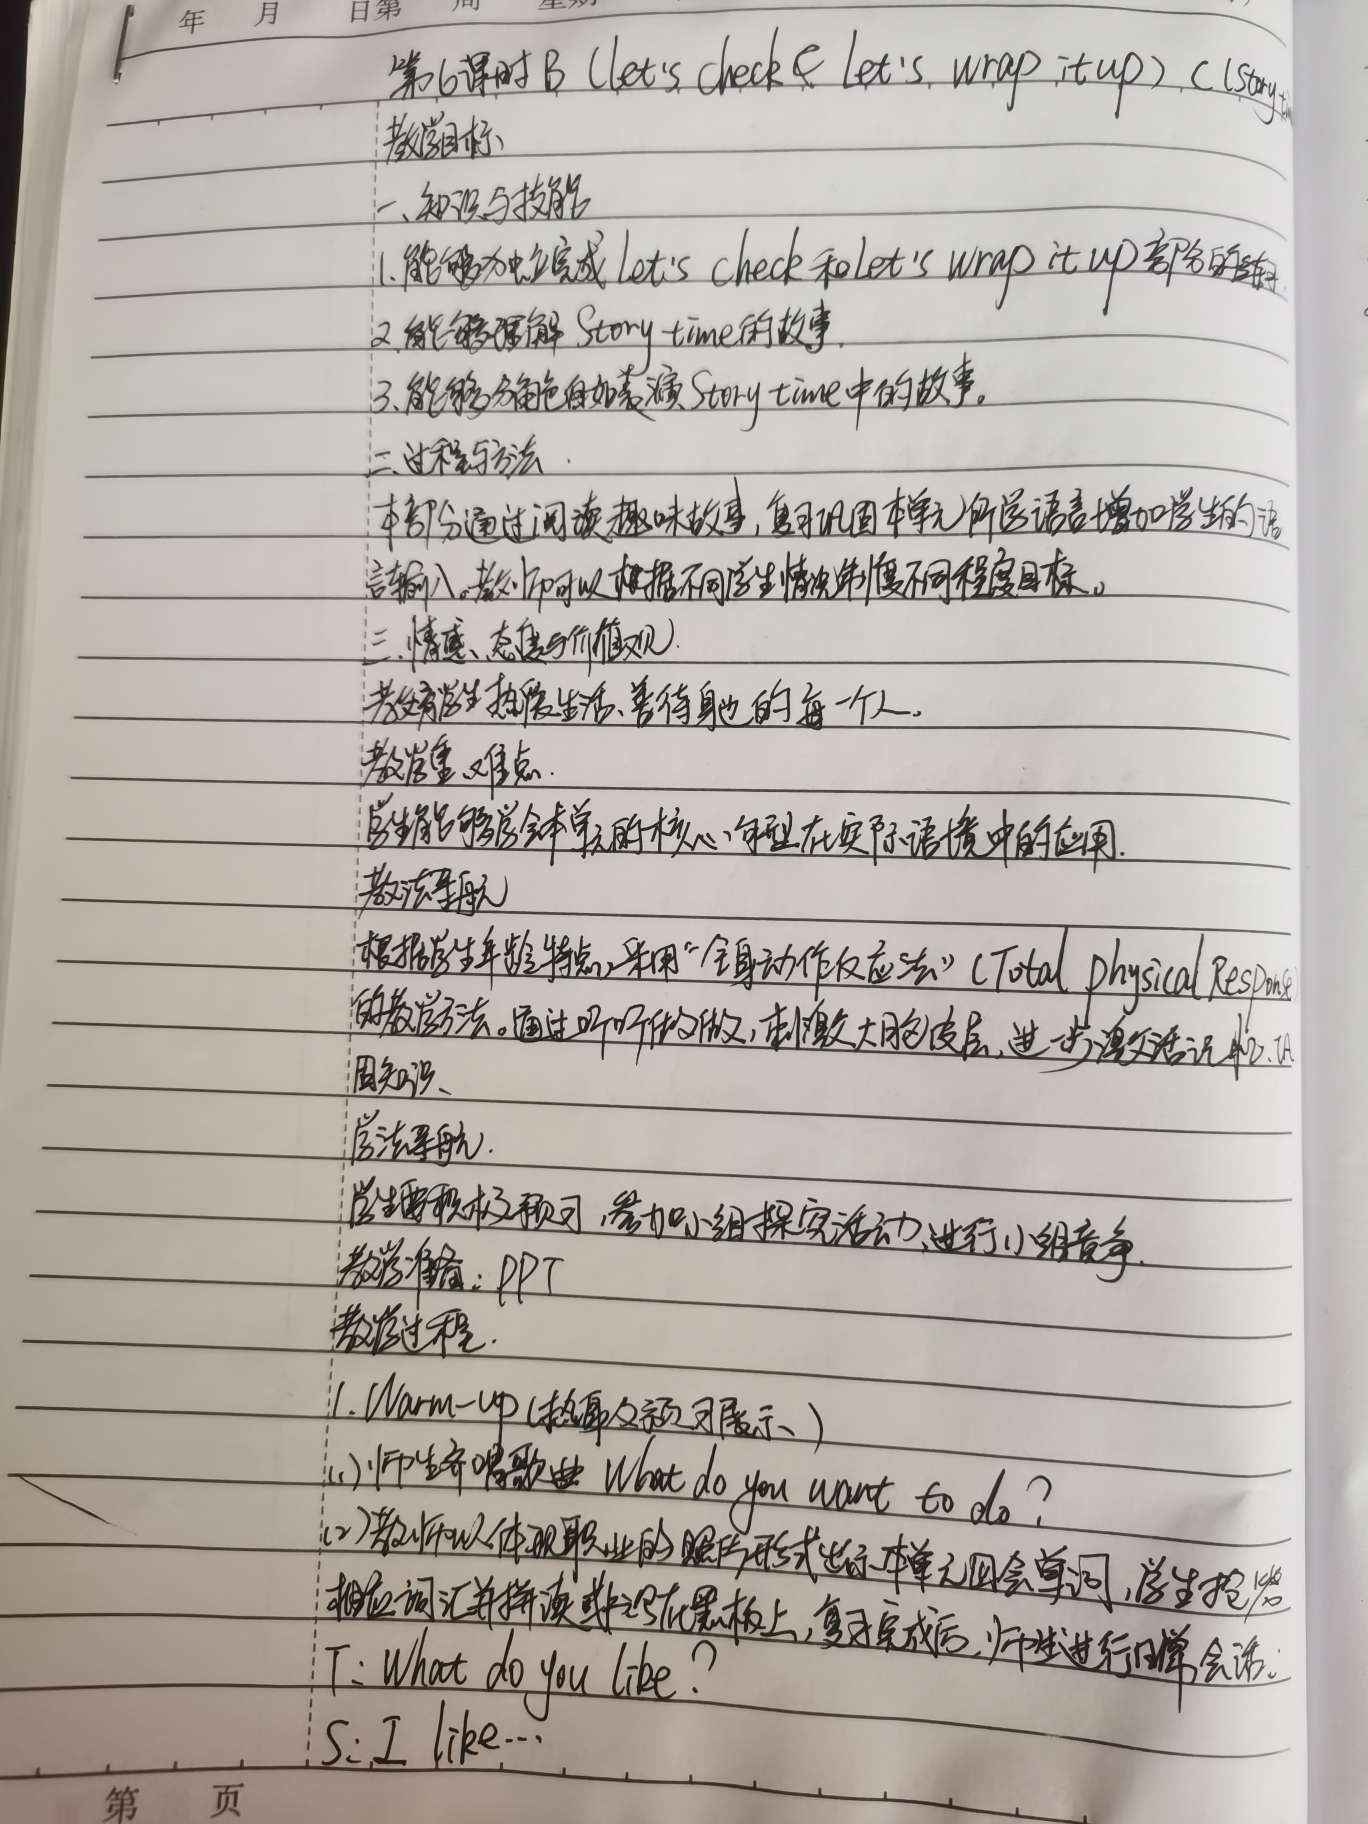 年 月 日第 周 星期
第6课时B(let's check & let's wrap it up) C(Story
教学目标
一、知识与技能
1.能够独立完成Let's check和Let's wrap it up部分的练习.
2.能够理解Story time的故事.
3.能够分角色自如表演Story time中的故事。
二、过程与方法
本部分通过阅读趣味故事,复习巩固本单元所学语言增加学生的语
言输入。教师可以根据不同学生情况制度不同程度目标。
三、情感、态度与价值观.
教育学生热爱生活、善待身边的每一个人。
教学重、难点.
学生能够学会本单元的核心句型在实际语境中的应用.
教法导航
根据学生年龄特点,采用“全身动作反应法”(Total physical Response
的教学方法。通过听听做做,刺激大脑皮层,进一步激活记忆.巩
固知识、
学法导航.
学生要积极预习,参加小组探究活动,进行小组竞争.
教学准备:PPT
教学过程.
1.Warm-up(热身及预习展示、)
(1)师生齐唱歌曲 What do you want to do?
(2)教师以体现职业的照片形式出示本单元四会单词,学生抢答
相应词汇并拼读或书写在黑板上,复习完成后,师生进行日常会话:
T: What do you like?
S: I like...
第 页